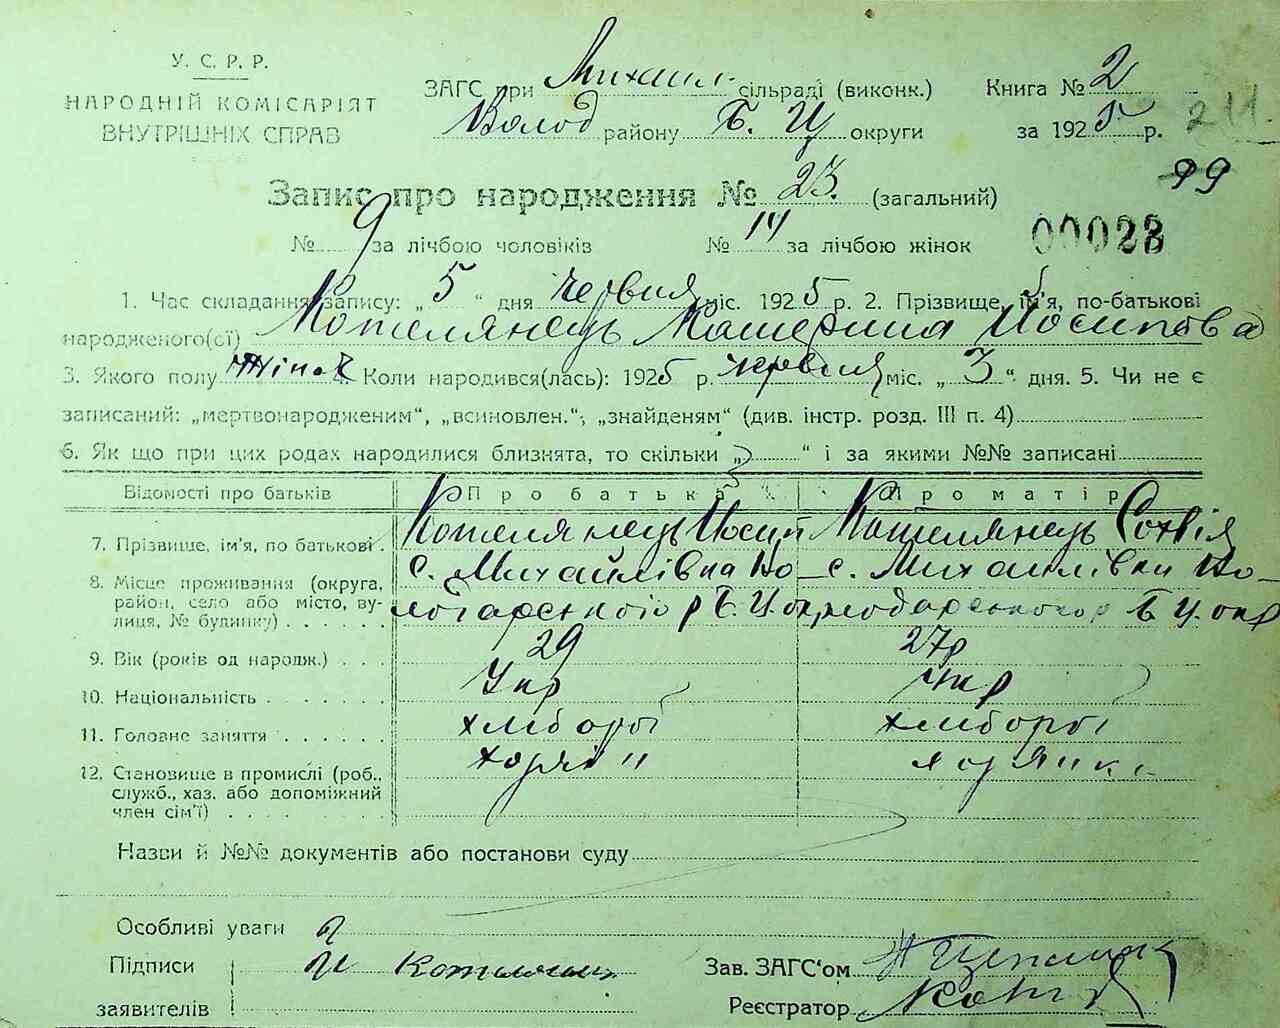 У. С. Р. Р.
НАРОДНІЙ КОМІСАРІЯТ
ВНУТРІШНІХ СПРАВ
ЗАГС при Михаил. сільраді (виконк.) Книга № 2
Волод району Б. Ц округи за 1925 р. 211.
Запис про народження № 23. (загальний) 99
№ 9 за лічбою чоловіків № 14 за лічбою жінок 00023
1. Час складання запису: „ 5 “ дня червня міс. 1925 р. 2. Прізвище, ім'я, по-батькові
народженого(єї) Котелянець Катерина Йосипова
3. Якого полу жіноч 4. Коли народився(лась): 1925 р. червня міс. „ 3 “ дня. 5. Чи не є
записаний: „мертвонародженим“, „всиновлен.“, „знайденям“ (див. інстр. розд. III п. 4)
6. Як що при цих родах народилися близнята, то скільки „ “ і за якими №№ записані
Відомості про батьків Про батька Про матір
7. Прізвище, ім'я, по батькові . Котелянець Йосип Котелянець Софія
8. Місце проживання (округа, район, село або місто, вулиця, № будинку) . . . . . .
с. Михайлівка Во- с. Михаилівки Во-
лодарського р Б. Ц. окр лодарського р Б Ц. окр
9. Вік (років од народж.) . . . 29 27р
10. Національність . . . . . . . Укр Укр
11. Головне заняття . . . . . . хлібороб хлібороб
12. Становище в промислі (роб., служб., хаз. або допоміжний член сім'ї) . . . . . . . .
Назви й №№ документів або постанови суду
Особливі уваги
Підписи Й
заявителів
Зав. ЗАГС'ом
Реєстратор